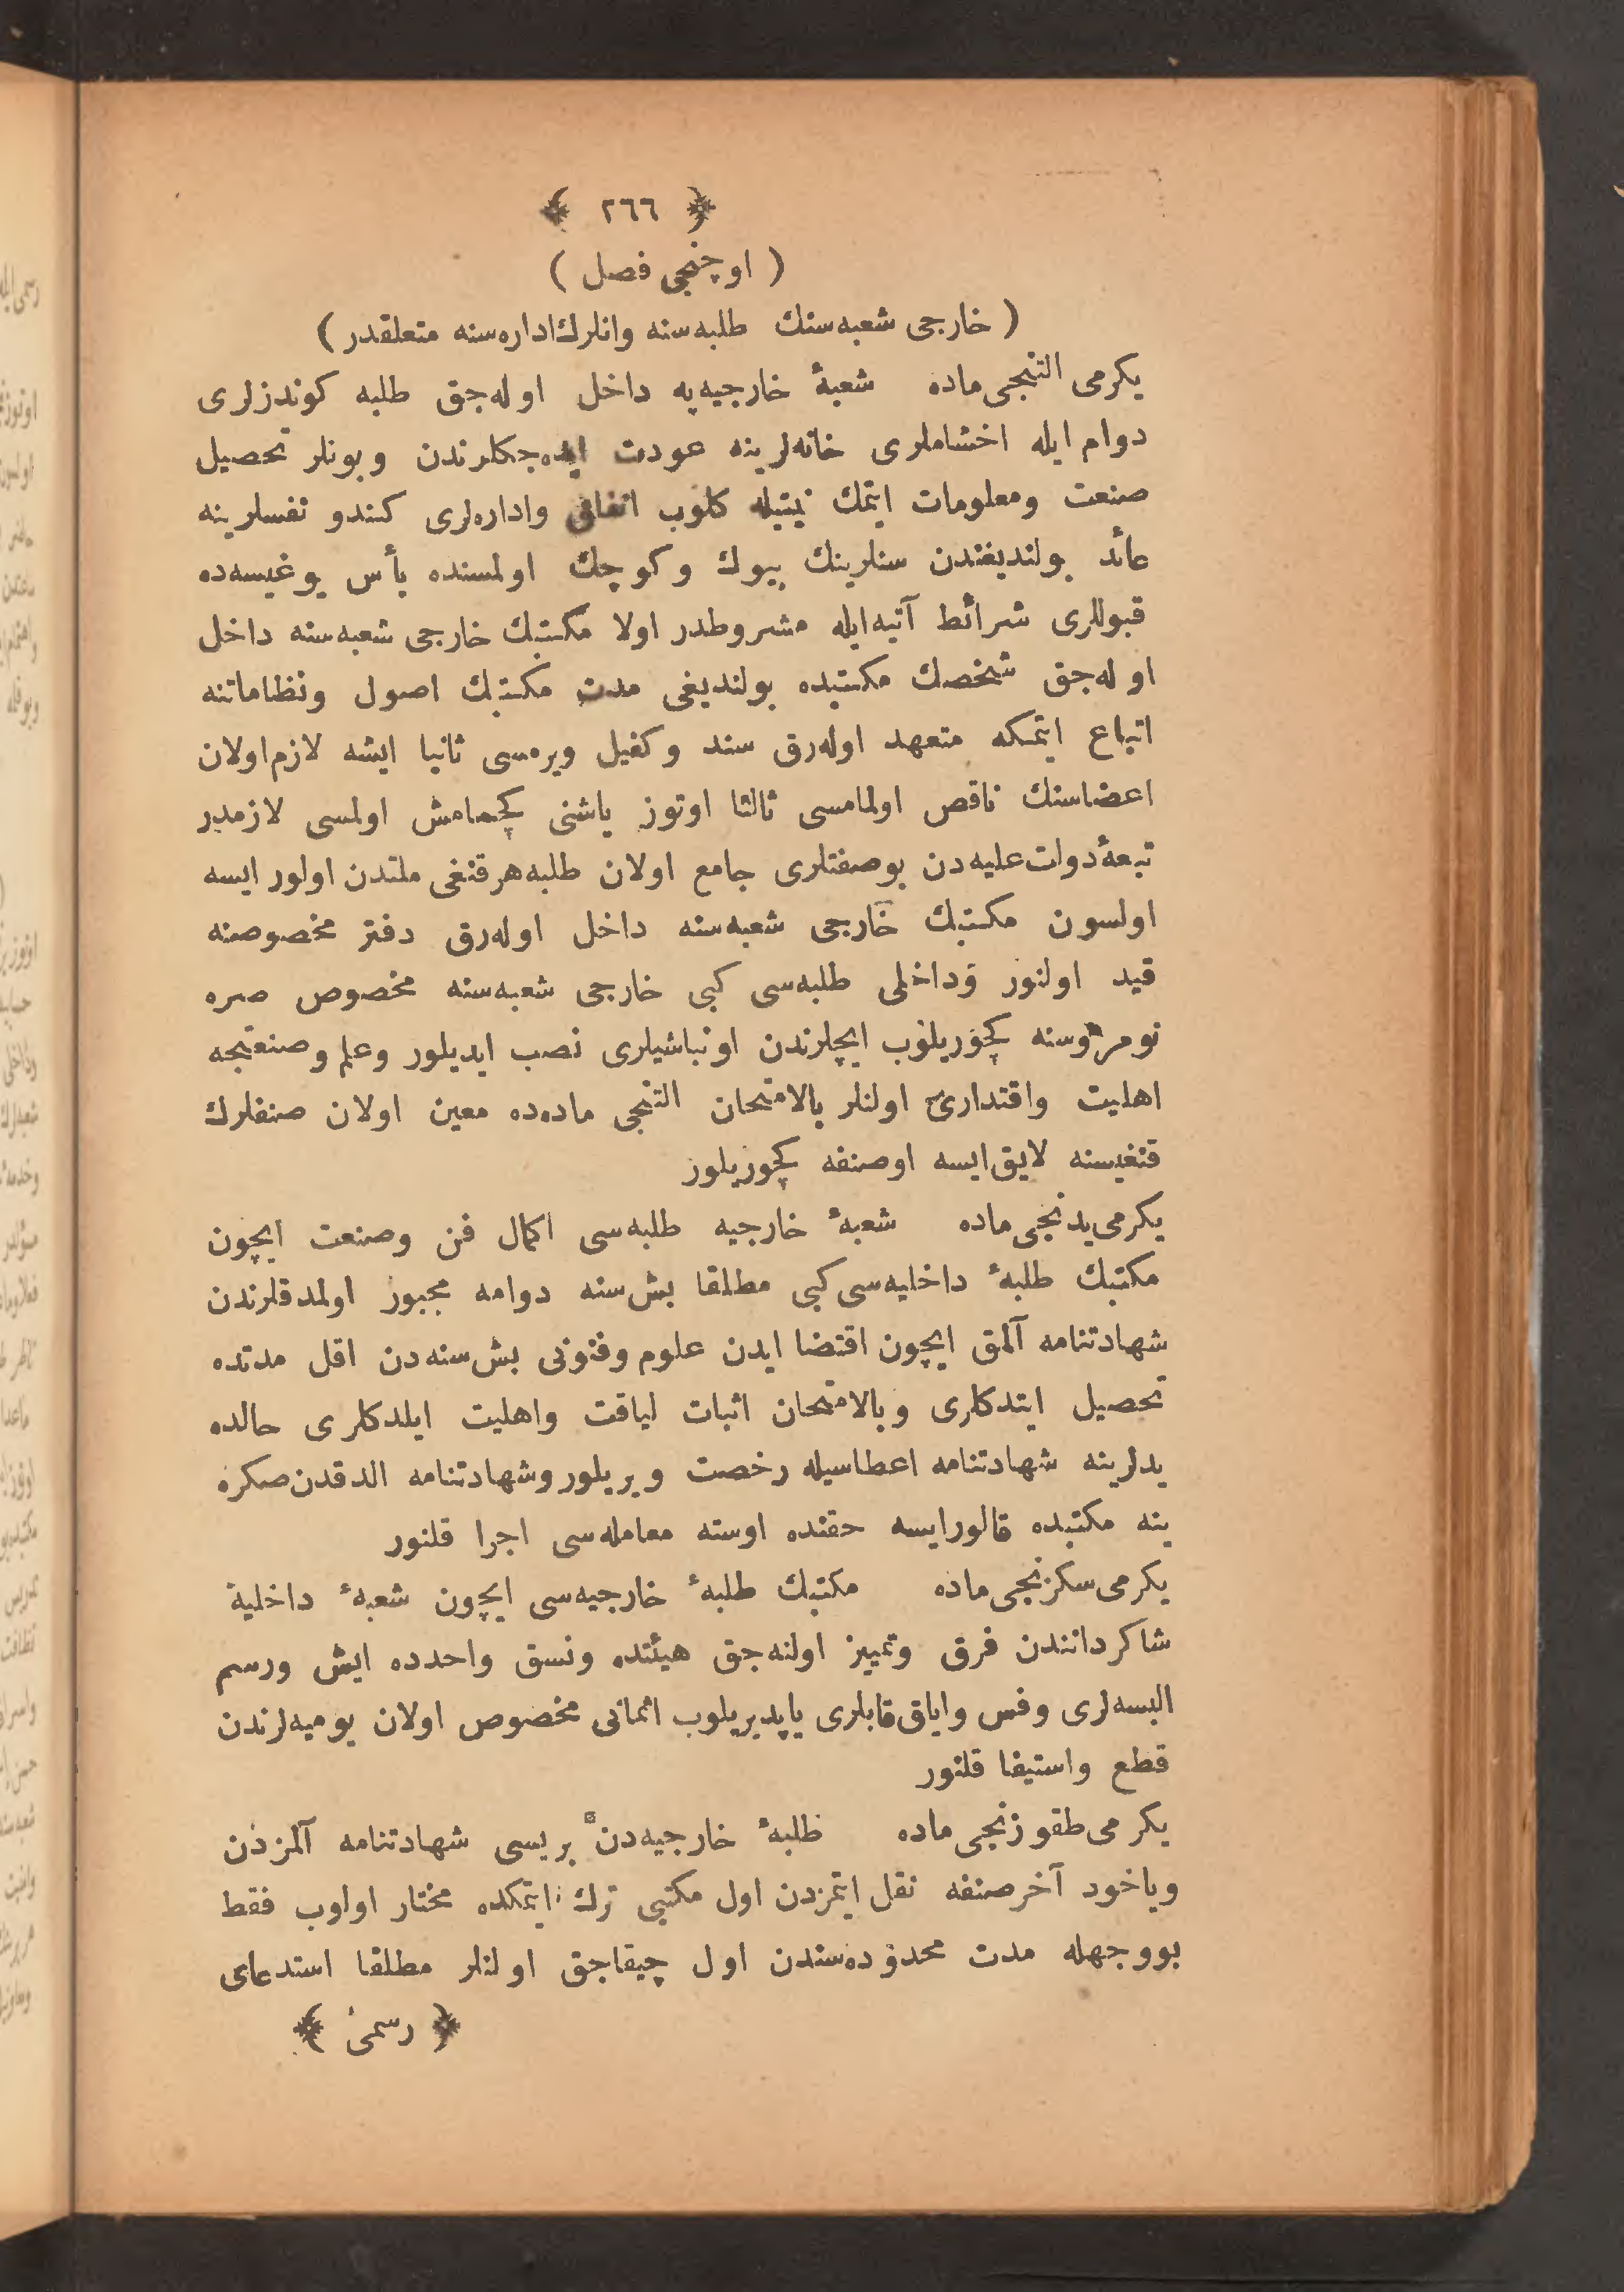 ﴿ ٢٦٦ ﴾
( اوچنجی فصل )
( خارجی شعبه‌سنك طلبه‌سنه وانلرك اداره‌سنه متعلقدر )
یكرمی التنجی ماده شعبهٔ خارجیه‌یه داخل اوله‌جق طلبه كوندزلری
دوام ایله اخشاملری خانه‌لرینه عودت ایده‌جكلرندن وبونلر تحصیل
صنعت ومعلومات ایتمك نیتیله كلوب انفاق واداره‌لری كندو نفسلرینه
عائد بولندیغندن سنلرینك بیوك وكوچك اولمسنده بأس یوغیسه‌ده
قبوللری شرائط آتیه ایله مشروطدر اولا مكتبك خارجی شعبه‌سنه داخل
اوله‌جق شخصك مكتبده بولندیغی مدت مكتبك اصول ونظاماتنه
اتباع ایتمكه متعهد اوله‌رق سند وكفیل ویرمسی ثانیا ایشه لازم اولان
اعضاسنك ناقص اولمامسی ثالثا اوتوز یاشنی كچمامش اولمسی لازمدر
تبعهٔ دولت علیه‌دن بوصفتلری جامع اولان طلبه هرقنغی ملتدن اولور ایسه
اولسون مكتبك خارجی شعبه‌سنه داخل اوله‌رق دفتر مخصوصنه
قید اولنور وداخلی طلبه‌سی كبی خارجی شعبه‌سنه مخصوص صره
نومروسنه كچوریلوب ایچلرندن اونباشیلری نصب ایدیلور وعلم وصنعتجه
اهلیت واقتداری اولنلر بالامتحان التنجی ماده‌ده معین اولان صنفلرك
قنغیسنه لایق ایسه اوصنفه كچوریلور
یكرمی یدنجی ماده شعبهٔ خارجیه طلبه‌سی اكمال فن وصنعت ایچون
مكتبك طلبهٔ داخلیه‌سی كبی مطلقا بش سنه دوامه مجبور اولمدقلرندن
شهادتنامه آلمق ایچون اقتضا ایدن علوم وفنونی بش سنه‌دن اقل مدتده
تحصیل ایتدكلری وبالامتحان اثبات لیاقت واهلیت ایلدكلری حالده
یدلرینه شهادتنامه اعطاسیله رخصت ویریلور وشهادتنامه الدقدن صكره
ینه مكتبده قالور ایسه حقنده اوسته معامله‌سی اجرا قلنور
یكرمی سكزنجی ماده مكتبك طلبهٔ خارجیه‌سی ایچون شعبهٔ داخلیهٔ
شاكرداننندن فرق وتمییز اولنه‌جق هیئتده ونسق واحدده ایش ورسم
البسه‌لری وفس وایاق قابلری یاپدیریلوب اثمانی مخصوص اولان یومیه‌لرندن
قطع واستیفا قلنور
یكرمی طقوزنجی ماده طلبهٔ خارجیه‌دن بریسی شهادتنامه آلمزدن
ویاخود آخر صنفه نقل ایتمزدن اول مكتبی ترك ایتمكده مختار اولوب فقط
بووجهله مدت محدوده‌سندن اول چیقاجق اولنلر مطلقا استدعای
﴿ رسمی ﴾